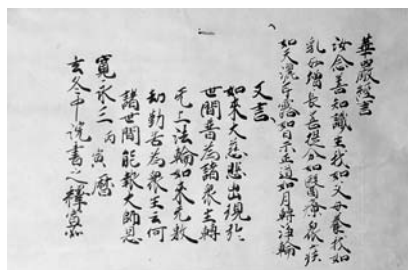 華嚴經言
汝念善知識生我如父母養我如
乳母增長菩提分如醫療衆疾
如天灑甘露如日示正道如月轉淨輪
又言
如來大慈悲出現於
世間普為諸衆生轉
无上法輪如來无數
劫勤苦為衆生云何
諸世間能報大師恩
寬永三丙寅曆
玄冬中說書之釋宣